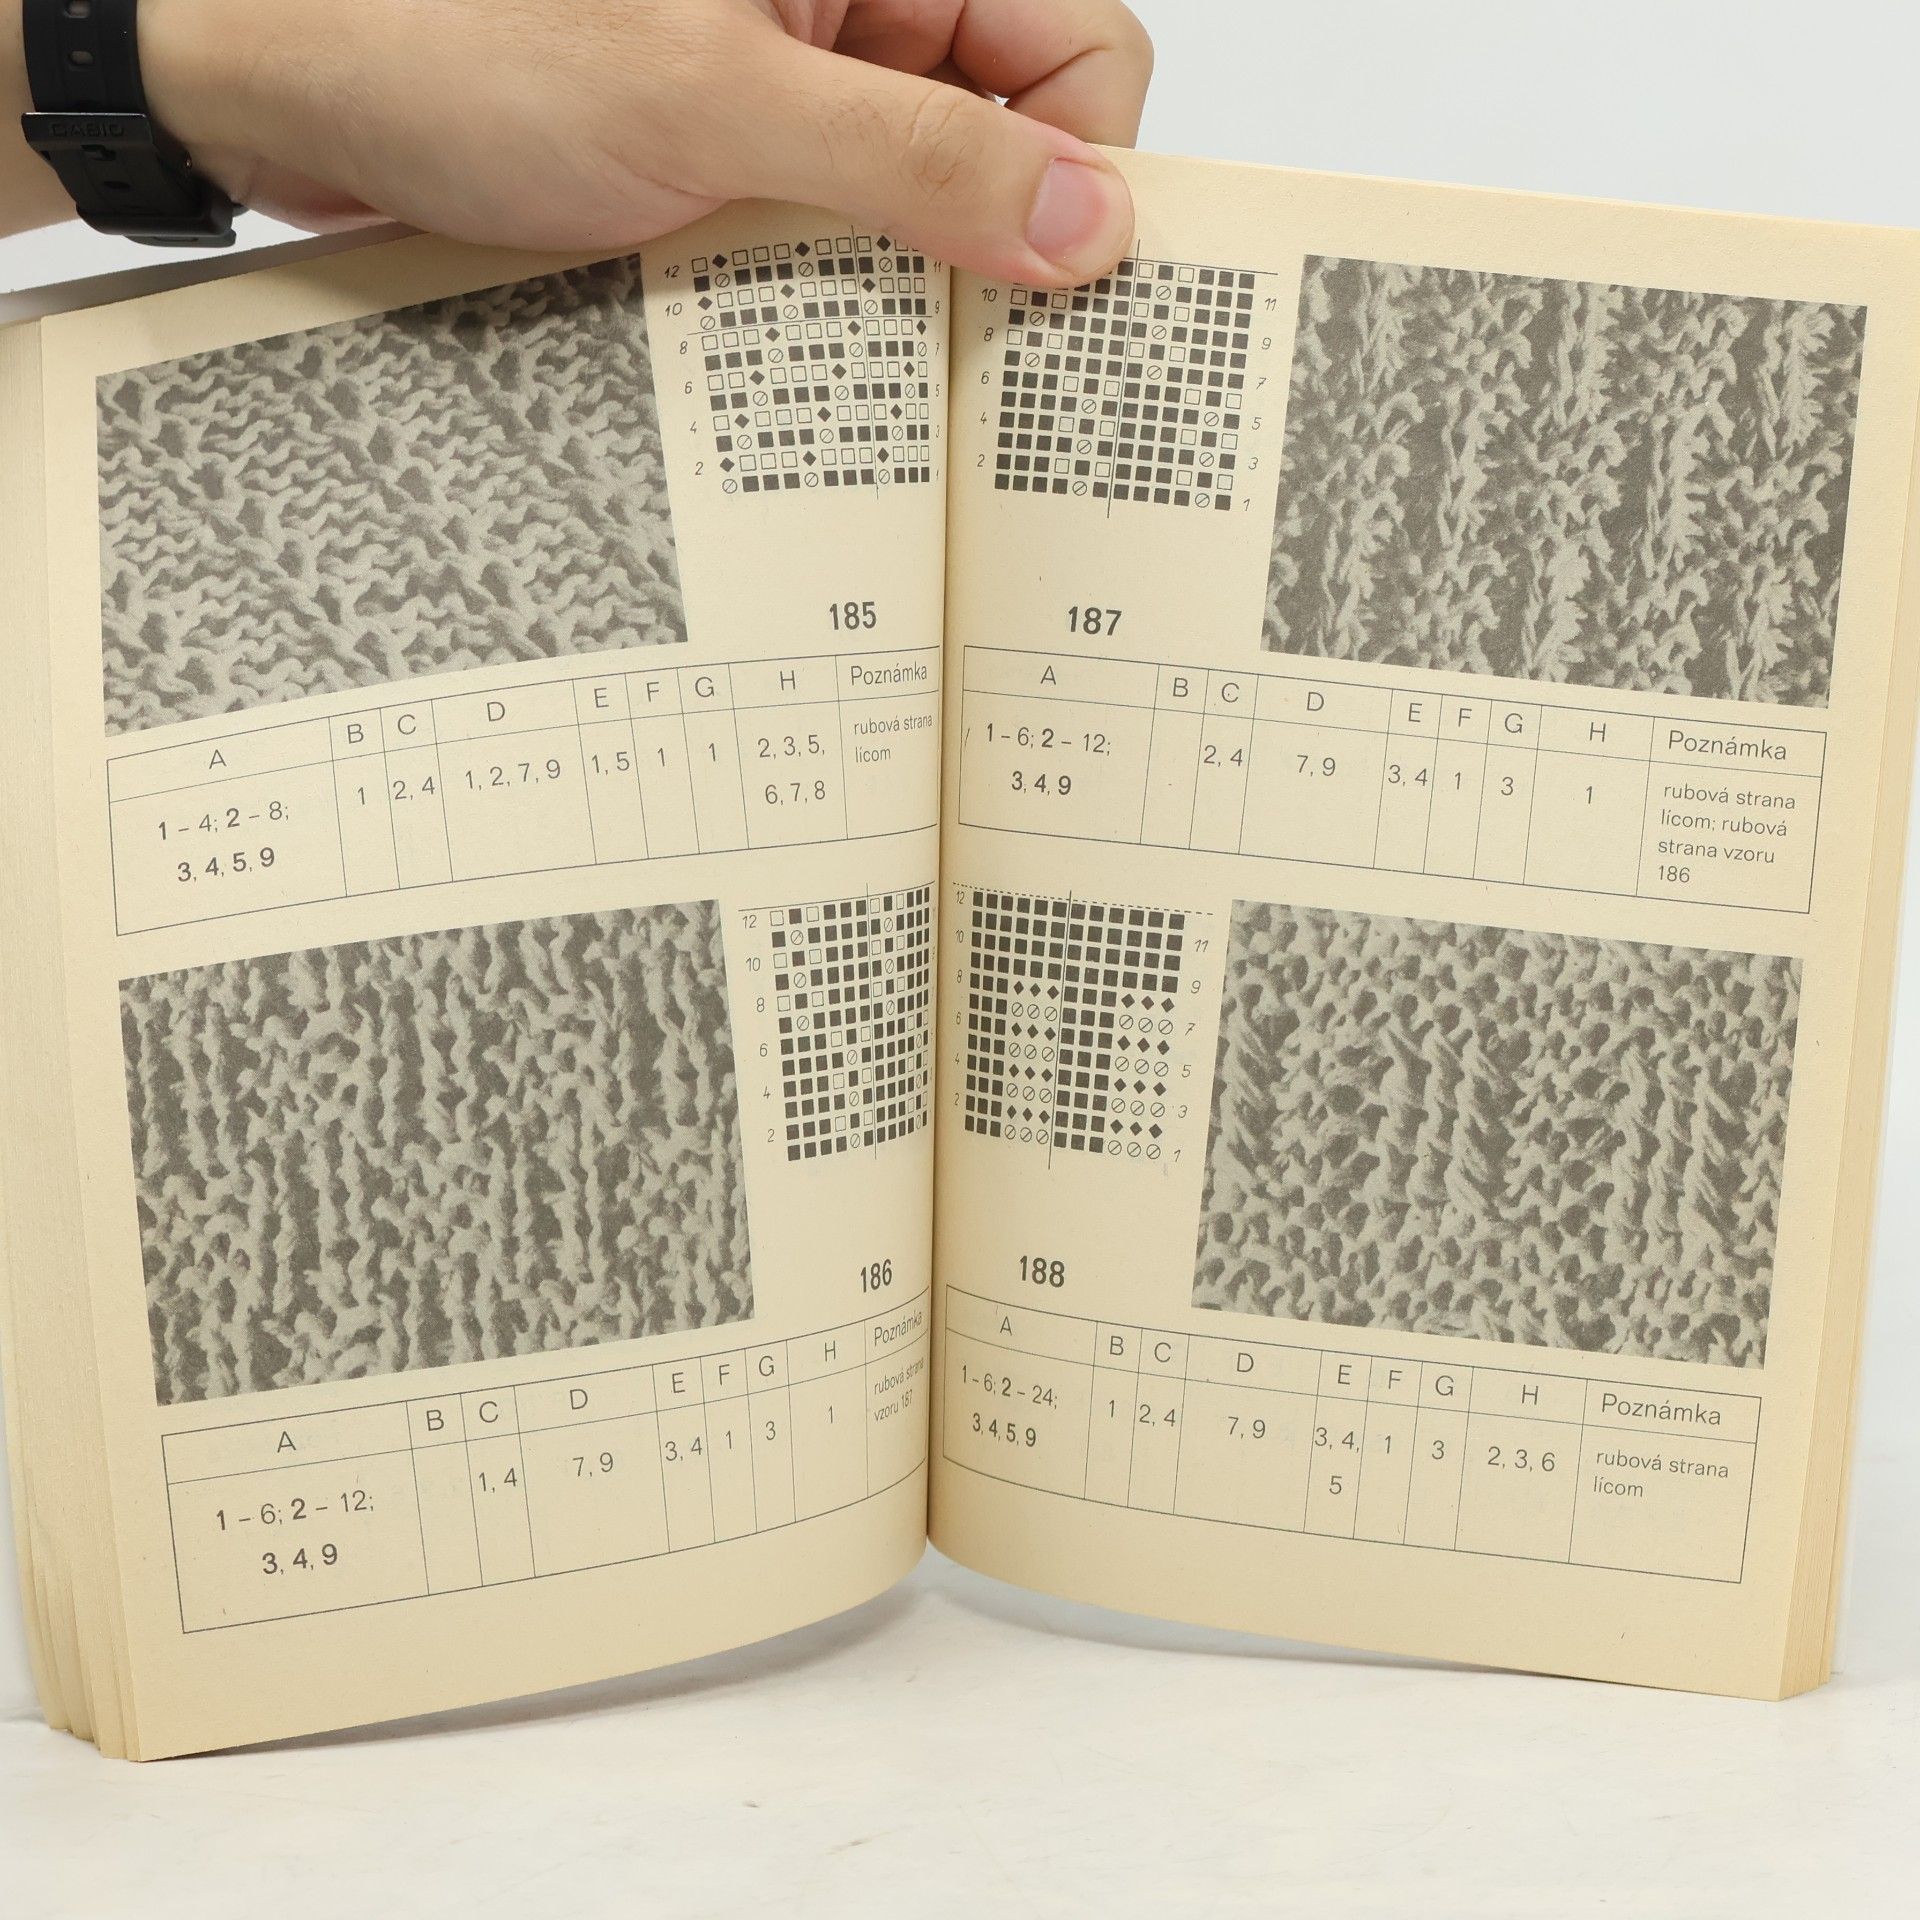 CASIO
12
10
8
6
4
2
11
9
7
5
3
1
185
A B C D E F G H Poznámka
1 – 4; 2 – 8;
3, 4, 5, 9
1
2, 4
1, 2, 7, 9
1, 5
1
1
2, 3, 5,
6, 7, 8
rubová strana
lícom
12
10
8
6
4
2
186
A B C D E F G H Poznámka
1 – 6; 2 – 12;
3, 4, 9
1, 4
7, 9
3, 4
1
3
1
rubová strana
vzoru 187
10
8
6
4
2
11
9
7
5
3
1
187
A B C D E F G H Poznámka
1 – 6; 2 – 12;
3, 4, 9
2, 4
7, 9
3, 4
1
3
1
rubová strana
lícom; rubová
strana vzoru
186
12
10
8
6
4
2
11
9
7
5
3
1
188
A B C D E F G H Poznámka
1 – 6; 2 – 24;
3, 4, 5, 9
1
2, 4
7, 9
3, 4,
5
1
3
2, 3, 6
rubová strana
lícom